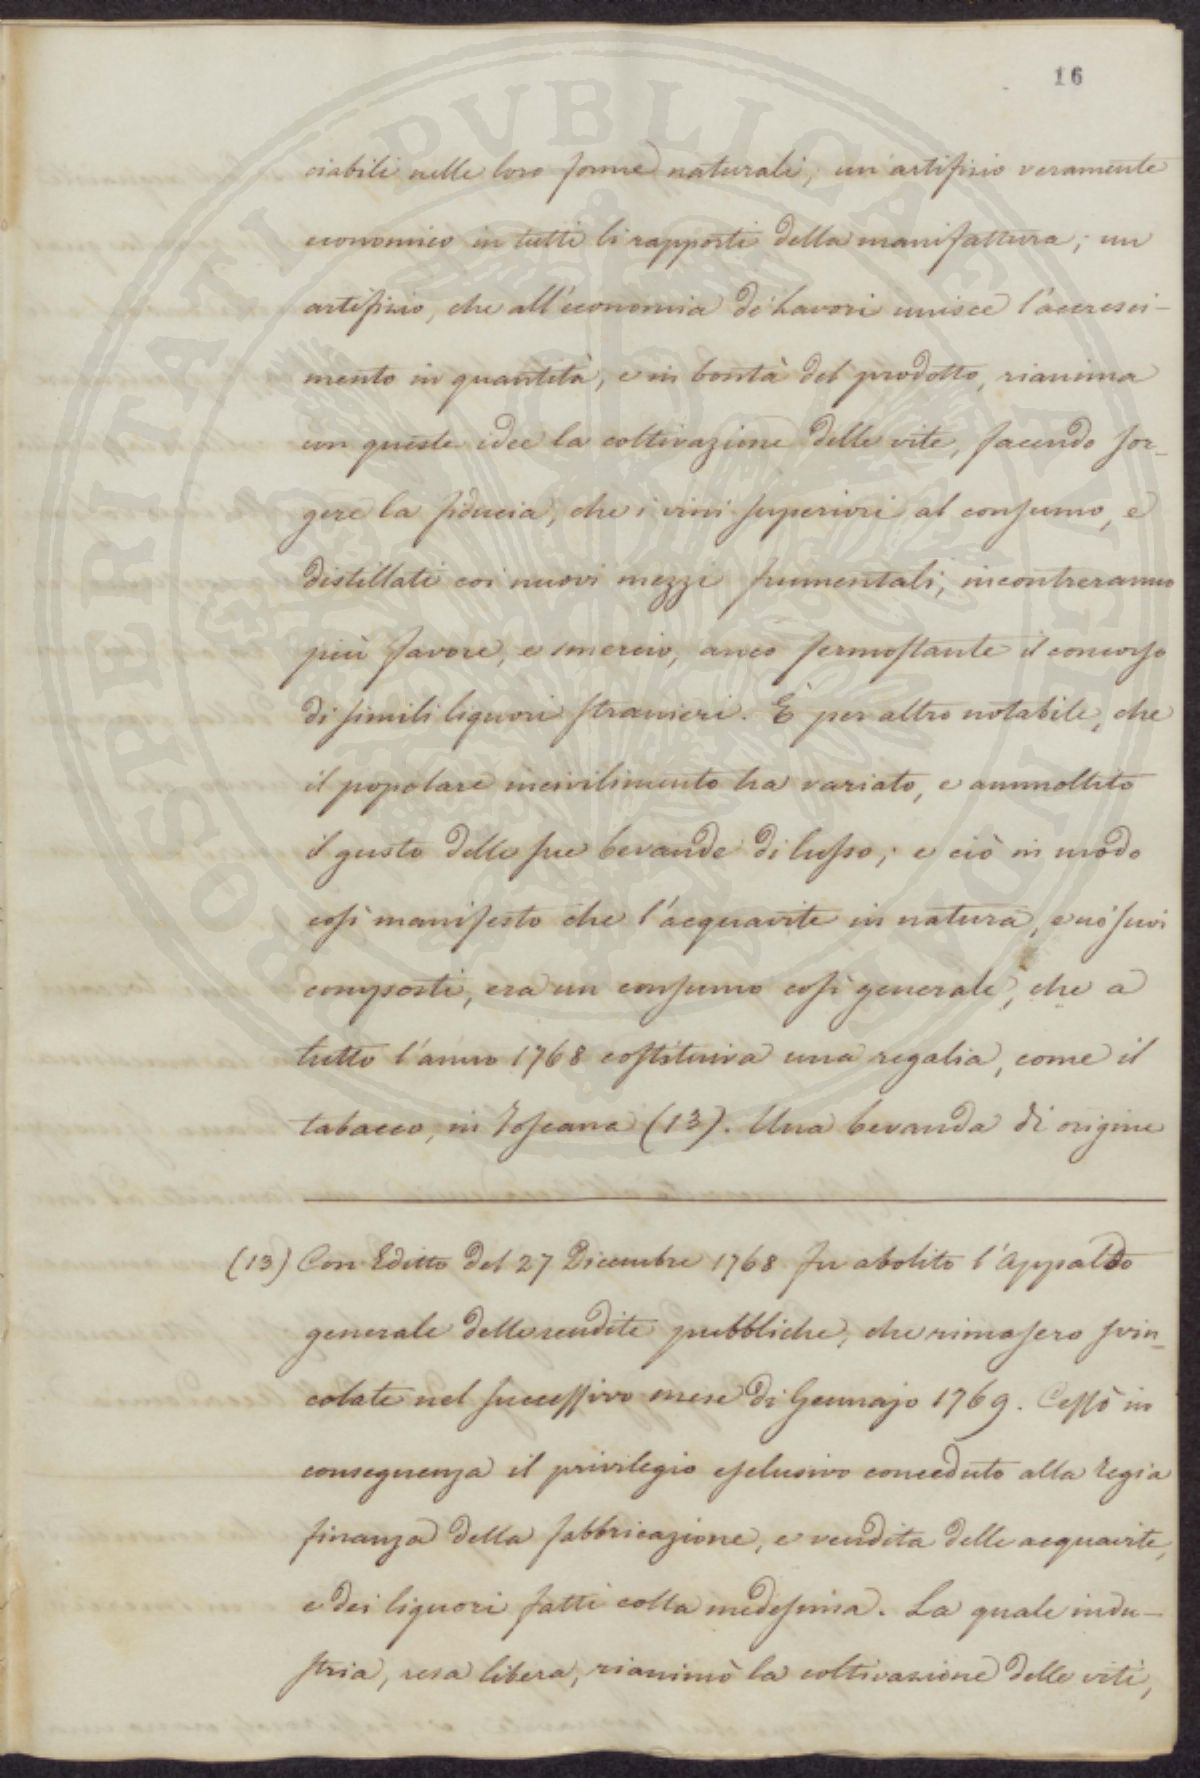 16
ciabili nelle loro forme naturali; un artifizio veramente
economico in tutti li rapporti della manifattura; un
artifizio, che all'economia de' Lavori unisce l'accresci-
mento in quantità, e in bontà del prodotto, rianima
con queste idee la coltivazione delle vite, facendo sor-
gere la fiducia, che i vini superiori al consumo, e
distillati coi nuovi mezzi strumentali, incontreranno
più favore, e smercio, anco fermostante il concorso
di simili liquori stranieri. È per altro notabile, che
il popolare incivilimento ha variato, e ammollito
il gusto delle sue bevande di lusso; e ciò in modo
così manifesto che l'acquavite in natura, e nò suoi
composti, era un consumo così generale, che a
tutto l'anno 1768 costituiva una regalia, come il
tabacco, in Toscana (13). Una bevanda di origine
(13) Con Editto del 27 Dicembre 1768 fu abolito l'Appaldo
generale delle rendite pubbliche, che rimasero svin-
colate nel successivo mese di Gennajo 1769. Cessò in
conseguenza il privilegio esclusivo conceduto alla Regia
finanza della fabbricazione, e vendita delle acquavite,
e dei liquori fatti colla medesima. La quale indu-
stria, resa libera, rianimò la coltivazione delle viti,
PROSPERITATI PVBLICAE AVGENDAE